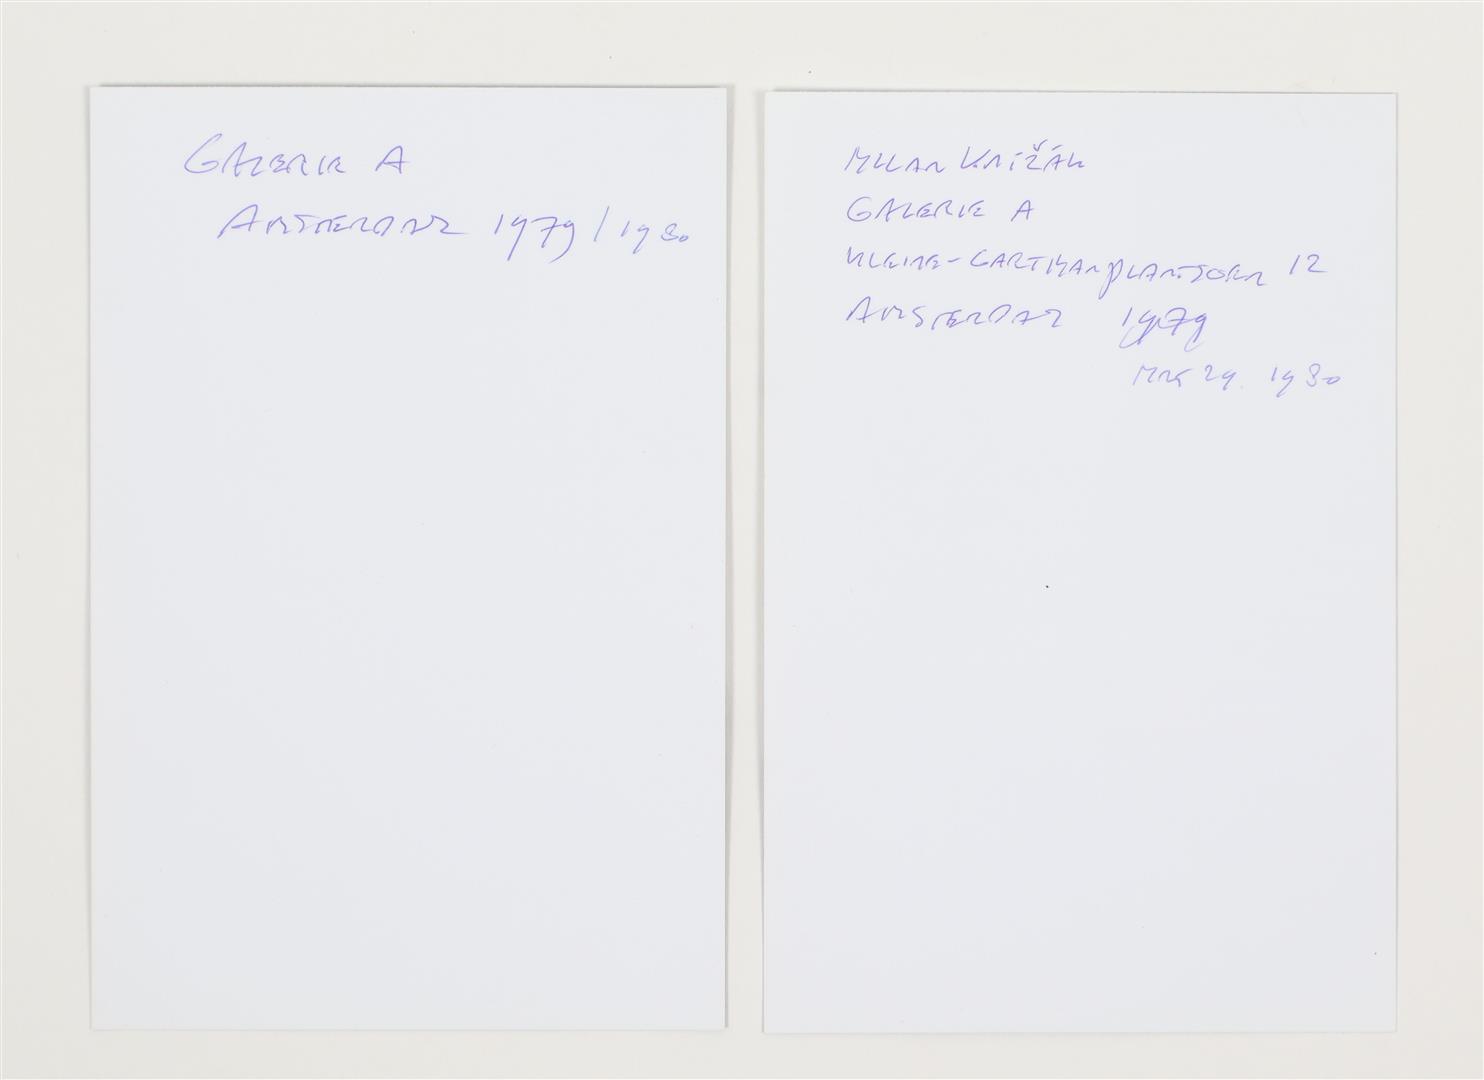 GALERIE A
AMSTERDAM 1979/1980
MILAN KNÍŽÁK
GALERIE A
KLEINE-GARTMANPLANTSOEN 12
AMSTERDAM 1979
29. 1980